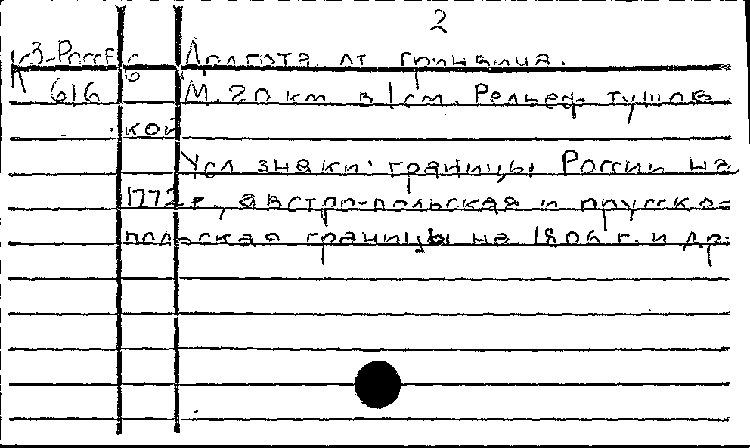 2
К3-Росс/6 Долгота от Гринвича.
616 М. 20 км в 1 см. Рельеф тушев
кой
Усл знаки: границы России на
1772 г., австро-польская и прусско-
польская границы на 1806 г. и др.